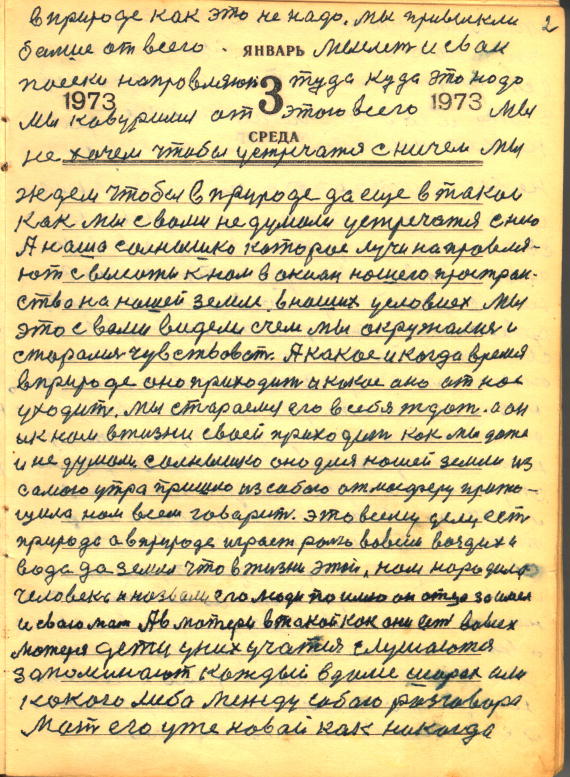 в природе как это не надо. мы привыкли 2
ЯНВАРЬ
от всего
1973 3 1973
туда куда это надо
мы от этого всего мы
СРЕДА
не хочем чтобы устречатя с ничем мы
ждем чтобы в природе да еще в такои
как мы с вами не думали устречатя с ню
А наша солнышко которое лучи направля-
ют с высоты к нам в океан нашего простран-
ство на нашей земле в наших условиях мы
это с вами видели с чем мы окружалия и
старалия чувствоват. А какое и когда время
в природе оно приходит и какое оно от нас
уходит. мы стараемя его в себя ждат. а он
и к нам в жизни своей приходит как мы даже
и не думали солнышко оно для нашей земли из
самого утра пришло из собою атмосферу
нам всем говарит. это всему делу ест
природа а в природе играет ролю воздух и
вода да земля что в жизни этой нам народила
человека и назвали его люди по имю он отца заимел
и сваго мат А в матери в такой как они ест
матеря дети у них учатся слушаются
запоминают каждый вдиле или
какого либа между сабою разговора
Мат его уже новай как никогда